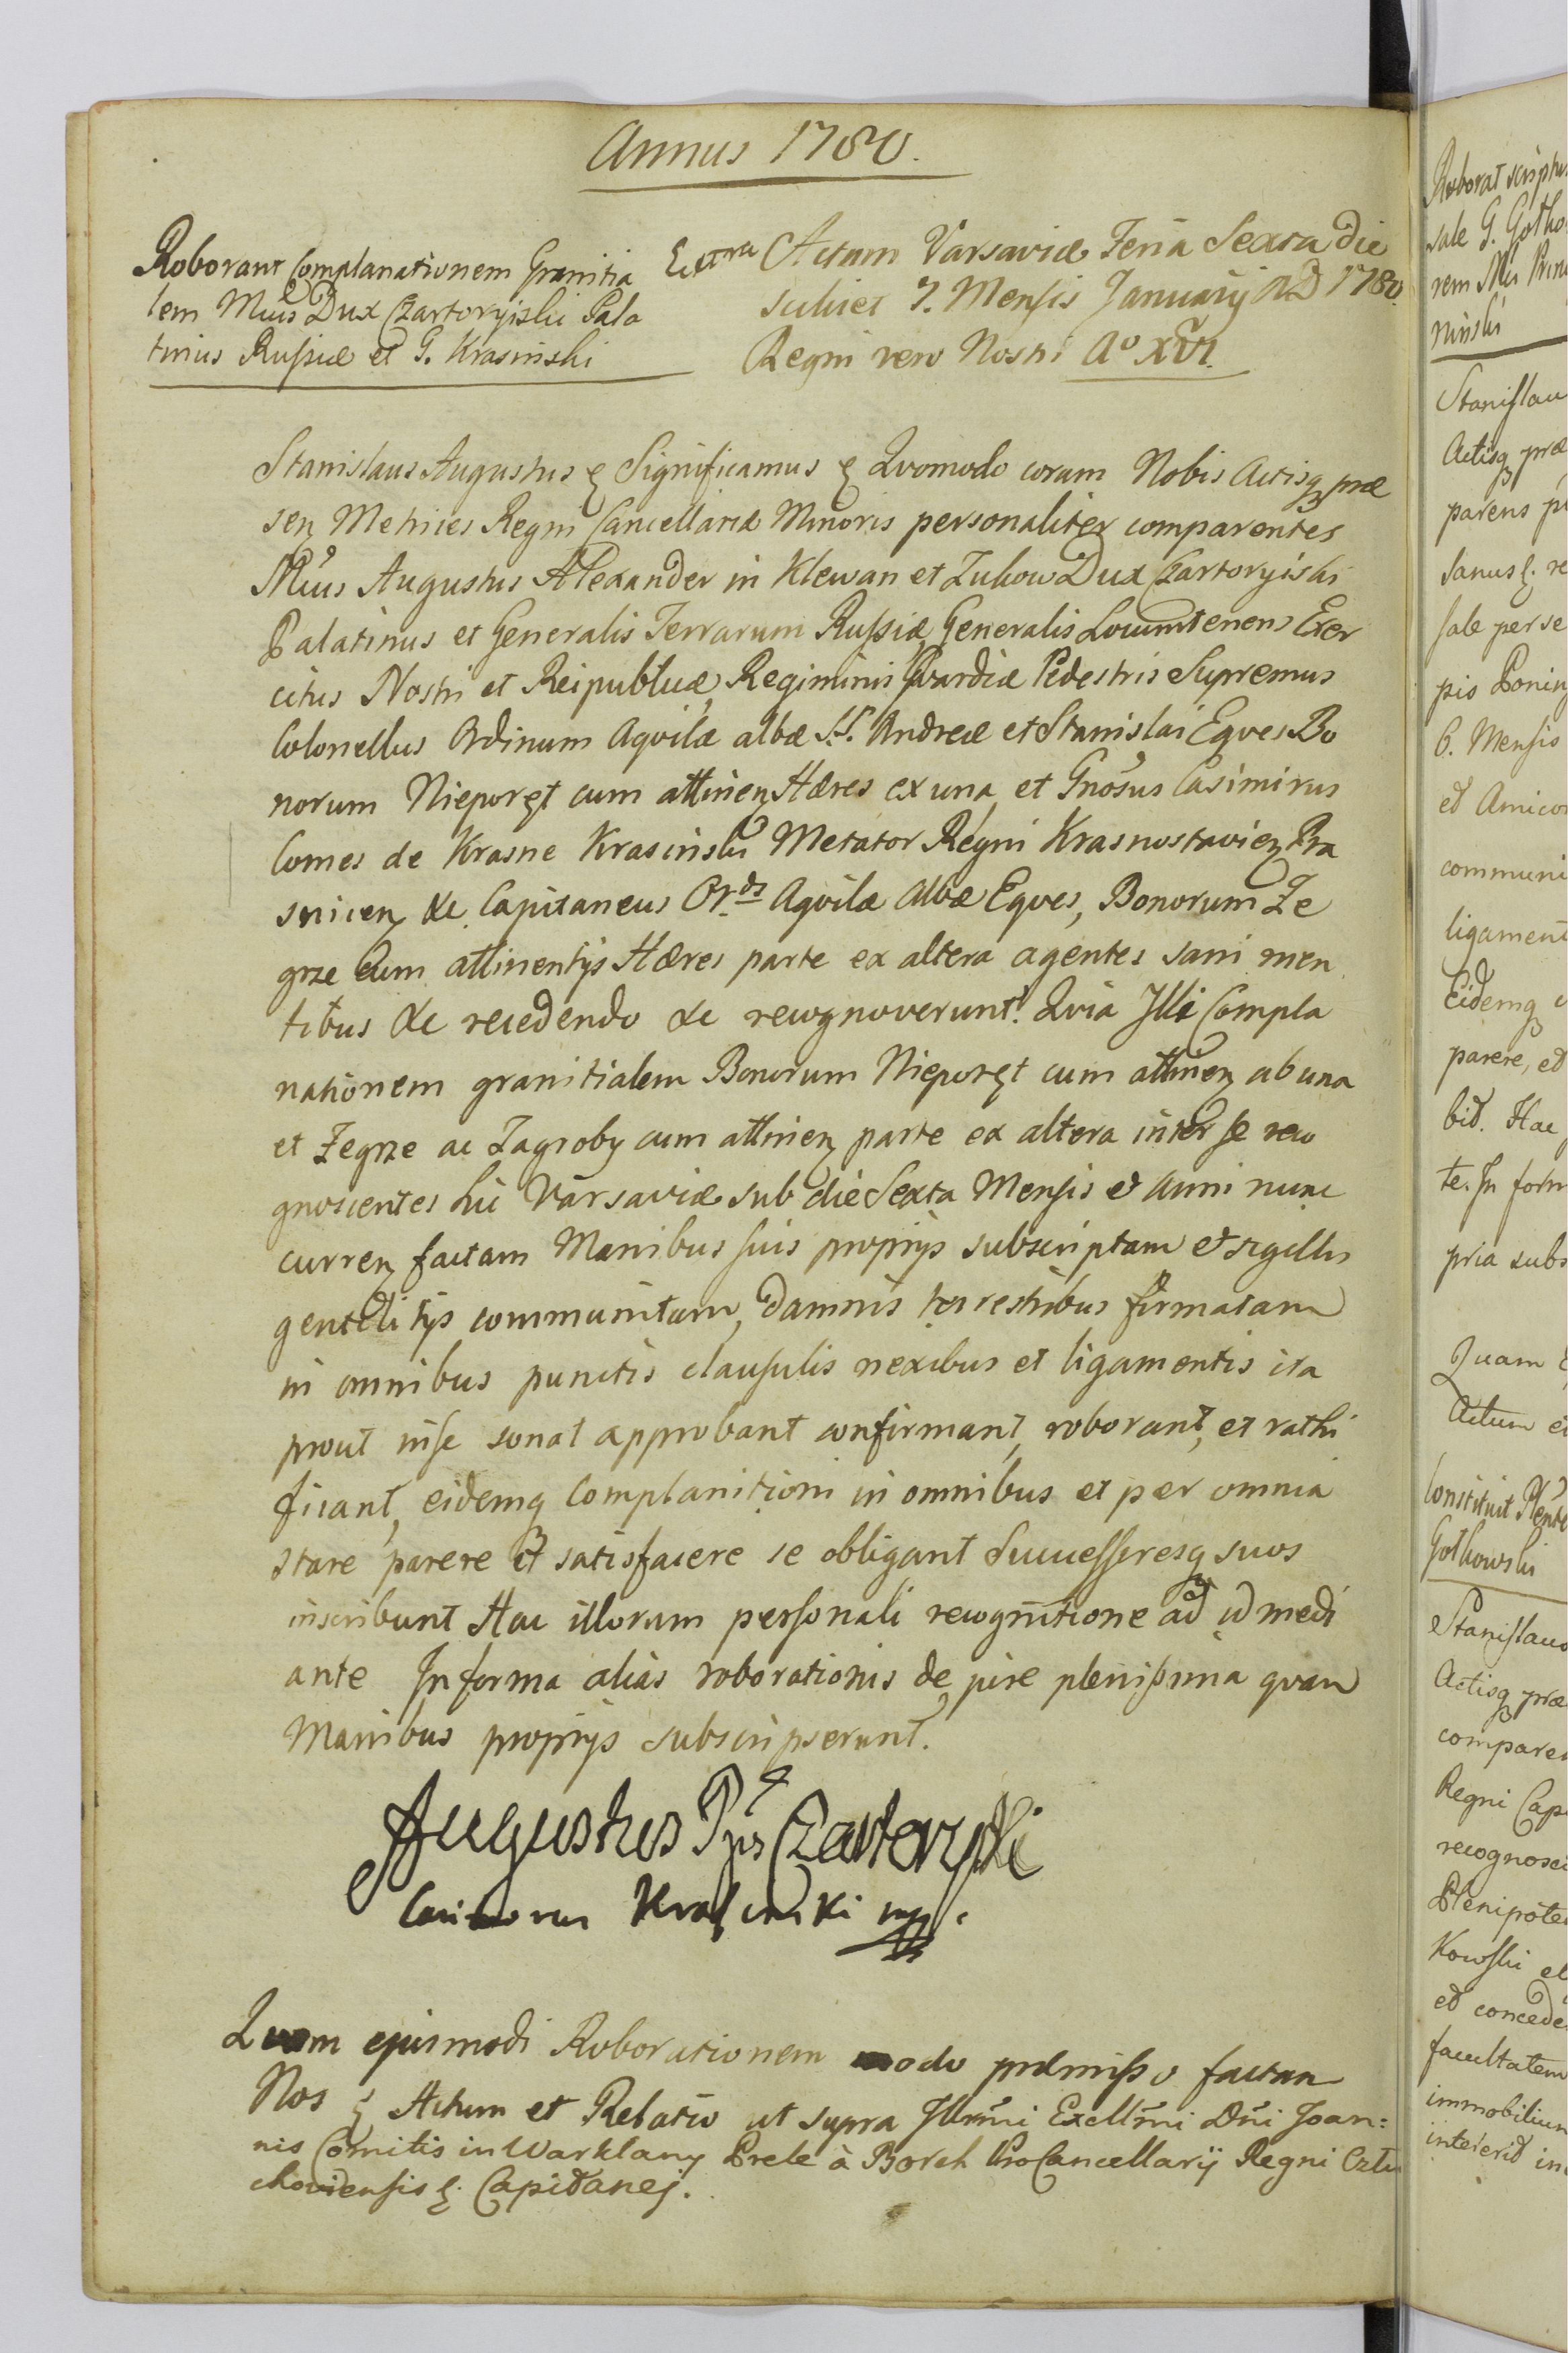 Annus 1780.
Roborant Complanationem Granitia
lem Mius Dux Czartoryiski Pala
tinus Rußiæ et G. Krasinski
Extra
Actum Varsaviæ Feria Sexta die
scilicet 7. Mensis January AD 1780.
Regni vero Nostri Aº XVI.
Stanislaus Augustus & Significamus & Qvomodo coram Nobis Actisq præ
sen Metrices Regni Cancellariæ Minoris personaliter comparentes
Mius Augustus Alexander in Klewan et Zukow Dux Czartoryiski
Palatinus et Generalis Terrarum Rußiæ, Generalis Locumtenens Exer
citus Nostri et Reipublicæ, Regiminis Gvardiæ Pedestris Supremus
Colonellus Ordinum Aqvilæ albæ S.S. Andreæ et Stanislai Eqves Bo
norum Nieporęt cum attinen Hæres ex una, et Gnosus Casimirus
Comes de Krasne Krasinski Metator Regni Krasnostavien Pra
snicen &c. Capitaneus Ords Aqvilæ Albæ Eqves, Bonorum Ze
grze Cum attinentijs Hæres parte ex altera agentes sani men
tibus &c recedendo &c recognoverunt. Qvia Illi Compla
nationem granitialem Bonorum Nieporęt cum attinen ab una
et Zegrze ac Zagroby cum attinen parte ex altera inter se reco
gnoscentes hic Varsaviæ sub die Sexta Mensis et Anni nunc
curren factam Manibus suis proprijs subscriptam et sigillis
gentilitijs communitam, damnis terrestribus firmatam
in omnibus punctis clausulis nexibus et ligamentis ita
prout in se sonat approbant confirmant, roborant, et rathi
ficant, eidemq Complanitioni in omnibus et per omnia
stare parere et satisfacere se obligant Successoresq suos
inscribunt Hac illorum personali recognitione ad id medi
ante In forma alias roborationis de jure plenißima qvam
Manibus proprijs subscripserunt.
Augustus Czartoryski
Casimirus Krasinski mp.
Qvam ejusmodi Roborationem modo præmißo factam
Nos & Actum et Relatio ut supra Illrmi Excellmi Dni Joan=
nis Comitis in Warklany Prele à Borch ProCancellarij Regni Czlu
choviensis &. Capitanej.
Roborat scriptu
sale G. Gotko
rem Mis Prin
ninski
Stanislau
Actisq præ
parens
sanus &. re
sale per se
pis Ponin
6. Mensis
et Amicor
communi
ligament
Eidemq
parere, et
bit. Hac
te. In form
pria subs
Quam &
Actum et
Constituit
Gotkowski
Stanislaus
Actisq præ
comparen
Regni Capi
recognosc
Plenipote
Kowski
et concede
facultatem
immobilium
intererit in